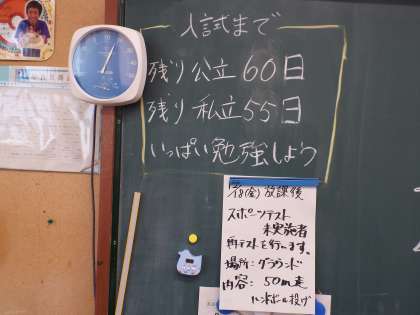 入試まで
残り公立60日
残り私立55日
いっぱい勉強しよう
18(金)放課後
スポーツテスト
未実施者
再テストを行います。
場所:グラウンド
内容:50m走
ハンドボール投げ